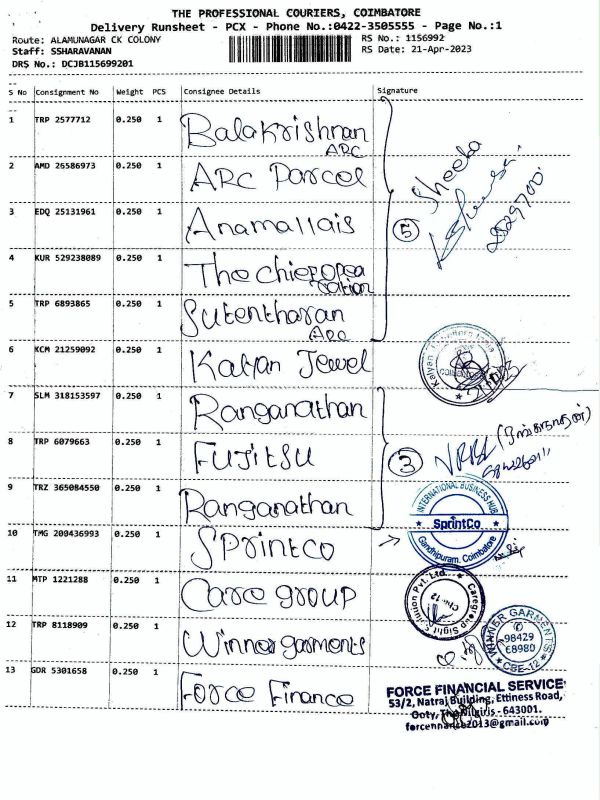 THE PROFESSIONAL COURIERS, COIMBATORE
Delivery Runsheet - PCX - Phone No.:0422-3505555 - Page No.:1
Route: ALAMUNAGAR CK COLONY
RS No.: 1156992
Staff: SSHARAVANAN
RS Date: 21-Apr-2023
DRS No.: DCJB115699201
S No Consignment No Weight PCS Consignee Details Signature
1 TRP 2577712 0.250 1 Balakrishnan
ARC
2 AMD 26586973 0.250 1 ARC Parcel
3 EDQ 25131961 0.250 1 Anamallais
4 KUR 529238089 0.250 1 The chief opea
cation
5 TRP 6893865 0.250 1 Sutentharan
ARC
Sheeba
5
6 KCM 21259092 0.250 1 Kalyan Jewel
7 SLM 318153597 0.250 1 Ranganathan
8 TRP 6079663 0.250 1 FUJITSU
3
(ரங்கநாதன்)
9 TRZ 365084550 0.250 1 Ranganathan
10 TMG 200436993 0.250 1 SPrintco
INTERNATIONAL BUSINESS HUB
SprintCo
Gandhipuram, Coimbatore
11 MTP 1221288 0.250 1 Care group
Caregroup Sight Solution Pvt. Ltd.
Cbe-12
12 TRP 8118909 0.250 1 Winner garments
WINNER GARMENTS
98429
68980
CBE-12
13 GDR 5301658 0.250 1 Force Finance
FORCE FINANCIAL SERVICE
53/2, Natraj Building, Ettiness Road,
Ooty, The Nilgiris - 643001.